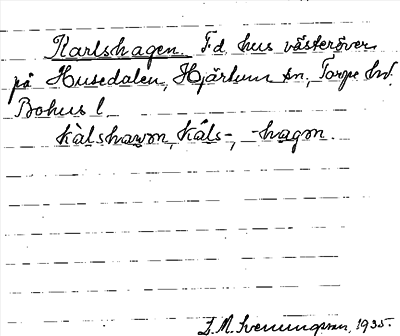 Karlshagen. F.d. hus västeröver
på Husedalen, Hjärtum sn, Torpe hd.
Bohus l.
kàlshawən, kåls-, -hagən.
S. M. Svenungsson, 1935.